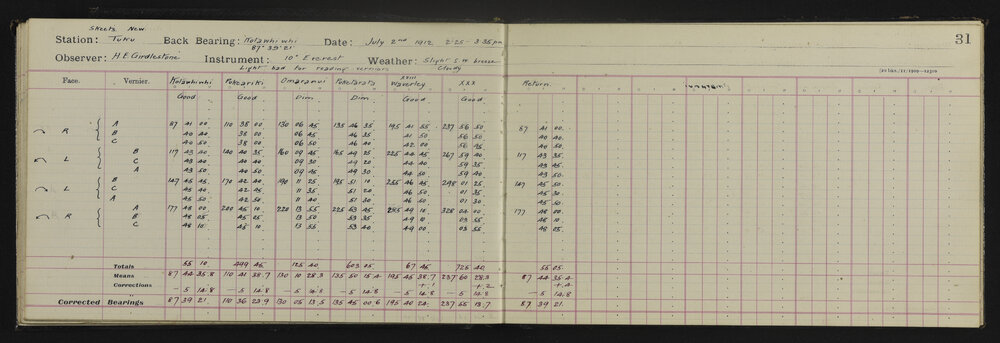 Skeets New
31
Station: Tuku Back Bearing: Kotawhiwhi Date: July 2nd 1912 2.25 - 3.35 pm
87° 39' 21"
Observer: H.E. Girdlestone Instrument: 10" Everest Weather: Slight S.W. breeze
Light bad for reading verniers Cloudy
Face. Vernier. Kotawhiwhi Pukeariki Omaranui Puketarata XVIII Waverley XXX Return
Good Good Dim. Dim. Good Good
R A 87 41 00 110 38 00 130 06 45 135 46 35 195 41 55 237 56 50 87 41 00
B 40 40 38 00 06 45 46 35 41 50 56 50 40 40
C 40 50 38 00 06 50 46 40 42 00 56 45 40 50
L B 117 43 40 140 40 35 160 09 45 165 49 25 225 44 45 267 59 40 117 43 35
C 43 40 40 40 09 30 49 20 44 40 59 35 43 45
A 43 50 40 50 09 45 49 30 44 50 59 40 43 50
L B 147 45 45 170 42 40 190 11 25 195 51 10 255 46 45 298 01 25 147 45 50
C 45 40 42 45 11 35 51 20 46 50 01 35 45 30
A 45 50 42 50 11 40 51 30 46 50 01 30 45 50
R A 177 48 00 200 45 10 220 13 55 225 53 45 285 49 10 328 04 00 177 48 00
B 48 05 45 05 13 50 53 35 49 10 03 55 48 10
C 48 10 45 10 13 55 53 40 49 00 03 55 48 05
Totals 55 10 499 45 125 40 603 05 67 45 725 40 55 05
Means 87 44 35.8 110 41 38.7 130 10 28.3 135 50 15.4 195 45 38.7 237 60 28.3 87 44 35.4
+.1 +.2 +.4
Corrections - 5 14.8 - 5 14.8 - 5 14.8 - 5 14.8 - 5 14.8 - 5 14.8 - 5 14.8
Corrected Bearings 87 39 21. 110 36 23.9 130 05 13.5 135 45 00.6 195 40 24. 237 55 13.7 87 39 21.